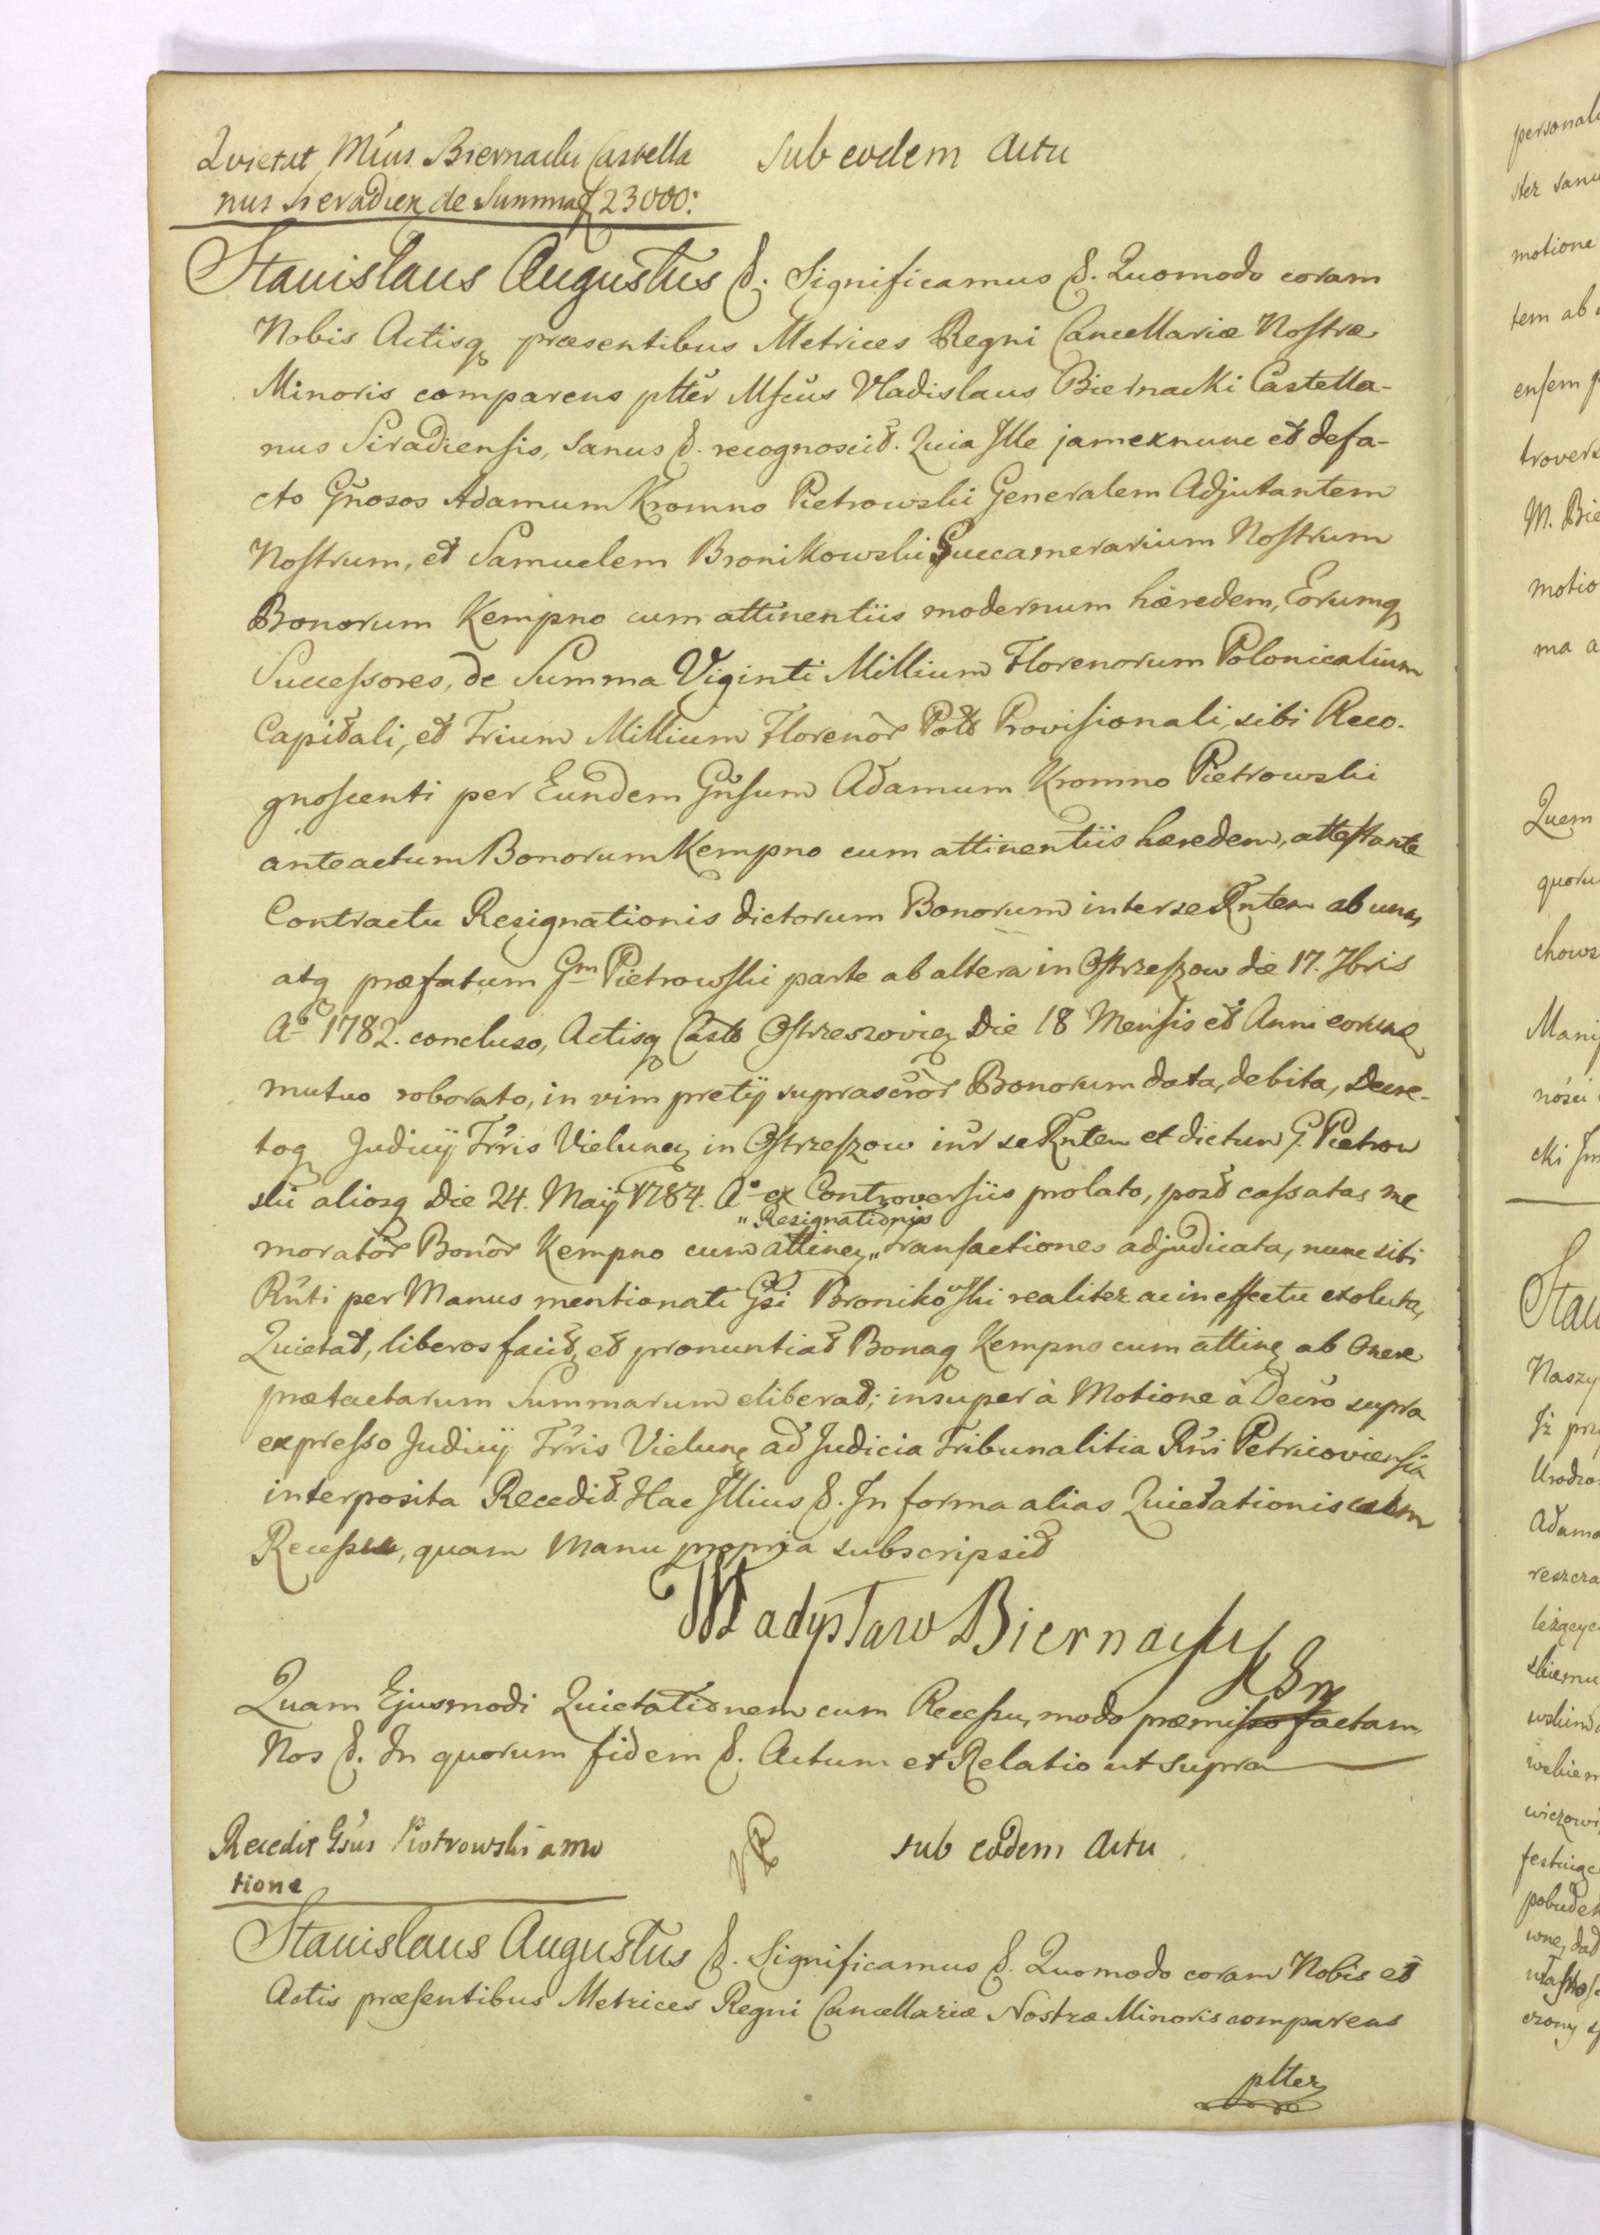 Quietat Mcus Biernacki Castella
nus Sieradien de Summa 23000:
Sub eodem Actu
Stanislaus Augustus &. Significamus &. Quomodo coram
Nobis Actisq præsentibus Metrices Regni Cancellariæ Nostræ
Minoris comparens plter Mfcus Vladislaus Biernacki Castella-
nus Siradiensis, sanus &. recognoscit. Quia Ille jamexnunc et defa-
cto Gnosos Adamum Kromno Pietrowski Generalem Adjutantem
Nostrum, et Samuelem Bronikowski Succamerarium Nostrum
Bonorum Kempno cum attinentiis modernum hæredem, Eorumq
Successores, de Summa Viginti Millium Florenorum Polonicalium
Capitali, et Trium Millium Florenor Pol Provisionali, sibi Reco-
gnoscenti per Eundem Gnsum Adamum Kromno Pietrowski
anteactum Bonorum Kempno cum attinentiis hæredem, attestante
Contractu Resignationis dictorum Bonorum inter se Rntem ab una,
atq præfatum Gm Pietrowski parte ab altera in Ostrzeszow die 17. 7bris
Ao 1782. concluso, Actisq Castb Ostrzeszovien Die 18 Mensis et Anni eorund
mutuo roborato, in vim pretij suprascror Bonorum data, debita, Decre-
toq Judicij Trris Vielunen in Ostrzeszow intr se Rntem et dictum G. Pietrow
ski aliosq Die 24. Maij 1784. Ao ex Controversiis prolato, post cassatas me
„Resignationis
morator Bonor Kempno cum attinen „ transactiones adjudicata, nunc sibi
Rnti per Manus mentionati Gsi Bronikowski realiter ac in effectu exoluta,
Quietat, liberos facit, et pronuntiat Bonaq Kempno cum attinen ab Onere
prætactarum Summarum eliberat; insuper à Motione à Decro supra
expresso Judicij Trris Vielunen ad Judicia Tribunalitia Rni Petricoviensia
interposita Recedit. Hac Illius &. In forma alias Quietationis cum
Recessu, quam Manu propria subscripsit
Władysław Biernacki
KSm
Quam Ejusmodi Quietationem cum Recessu, modo præmisso factam,
Nos &. In quorum fidem &. Actum et Relatio ut supra
Recedit Gsus Piotrowski a mo
tione
sub eodem Actu
Stanislaus Augustus &. Significamus &. Quomodo coram Nobis et
Actis præsentibus Metrices Regni Cancellariæ Nostræ Minoris comparens
plter
personali
motione
tem ab
ensem
trovers
M. Bie
motio
ma a
Quem
quoru
chows
Mani
ności
cki
Stan
Naszy
Iż prz
Urodzo
Adamo
reszcza
leżącye
skiemu
wskim